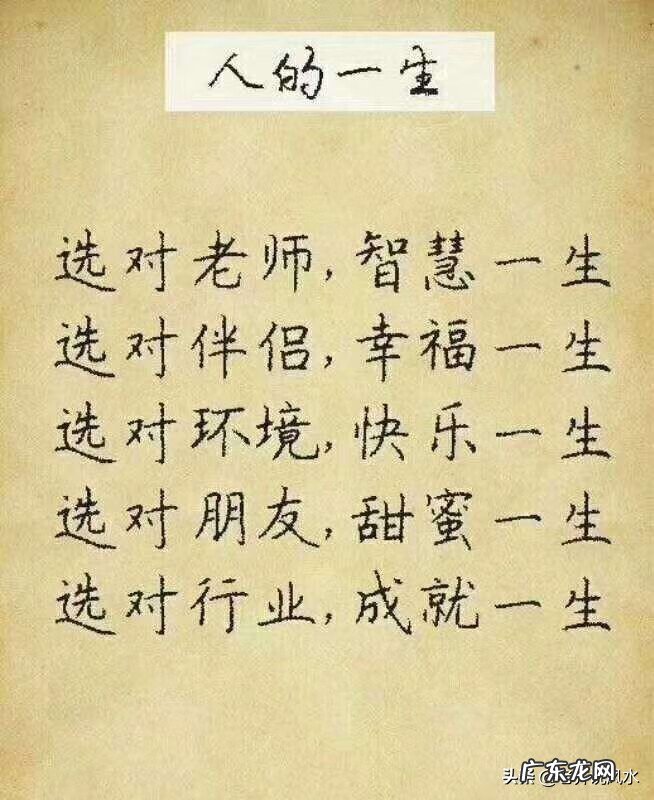 人的一生
选对老师,智慧一生
选对伴侣,幸福一生
选对环境,快乐一生
选对朋友,甜蜜一生
选对行业,成就一生
广东龙网
头条
水